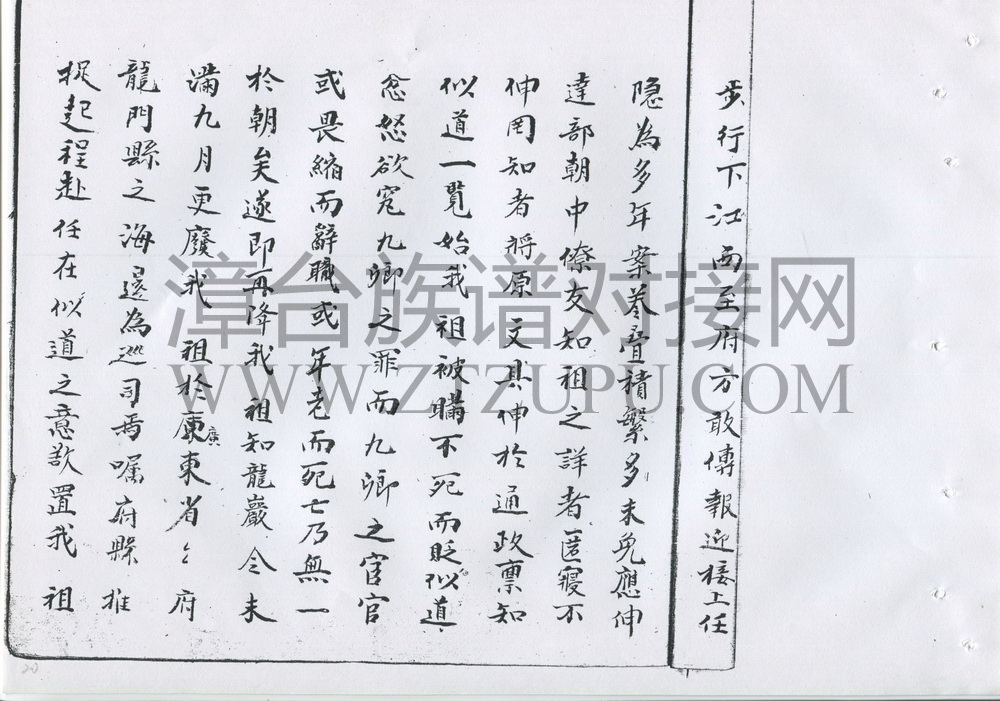 步行下江西至府方敢傳報迎接上任
隐為多年案卷疊積繁多未免應伸
達部朝中僚友知祖之詳者匿寢不
伸罔知者將原文具伸於通政禀知
似道一覧始我祖被瞞不死而貶似道
忿怒欲究九卿之罪而九卿之官官
或畏縮而辭職或年老而死亡乃無一
於朝矣遂即再降我祖知龍巖令未
滿九月更廢我祖於廉東省〻府
廣
龍門縣之海邊為巡司焉囑府縣推
捉起程赴任在似道之意欲置我祖
漳台族谱对接网
WWW.ZTZUPU.COM
20